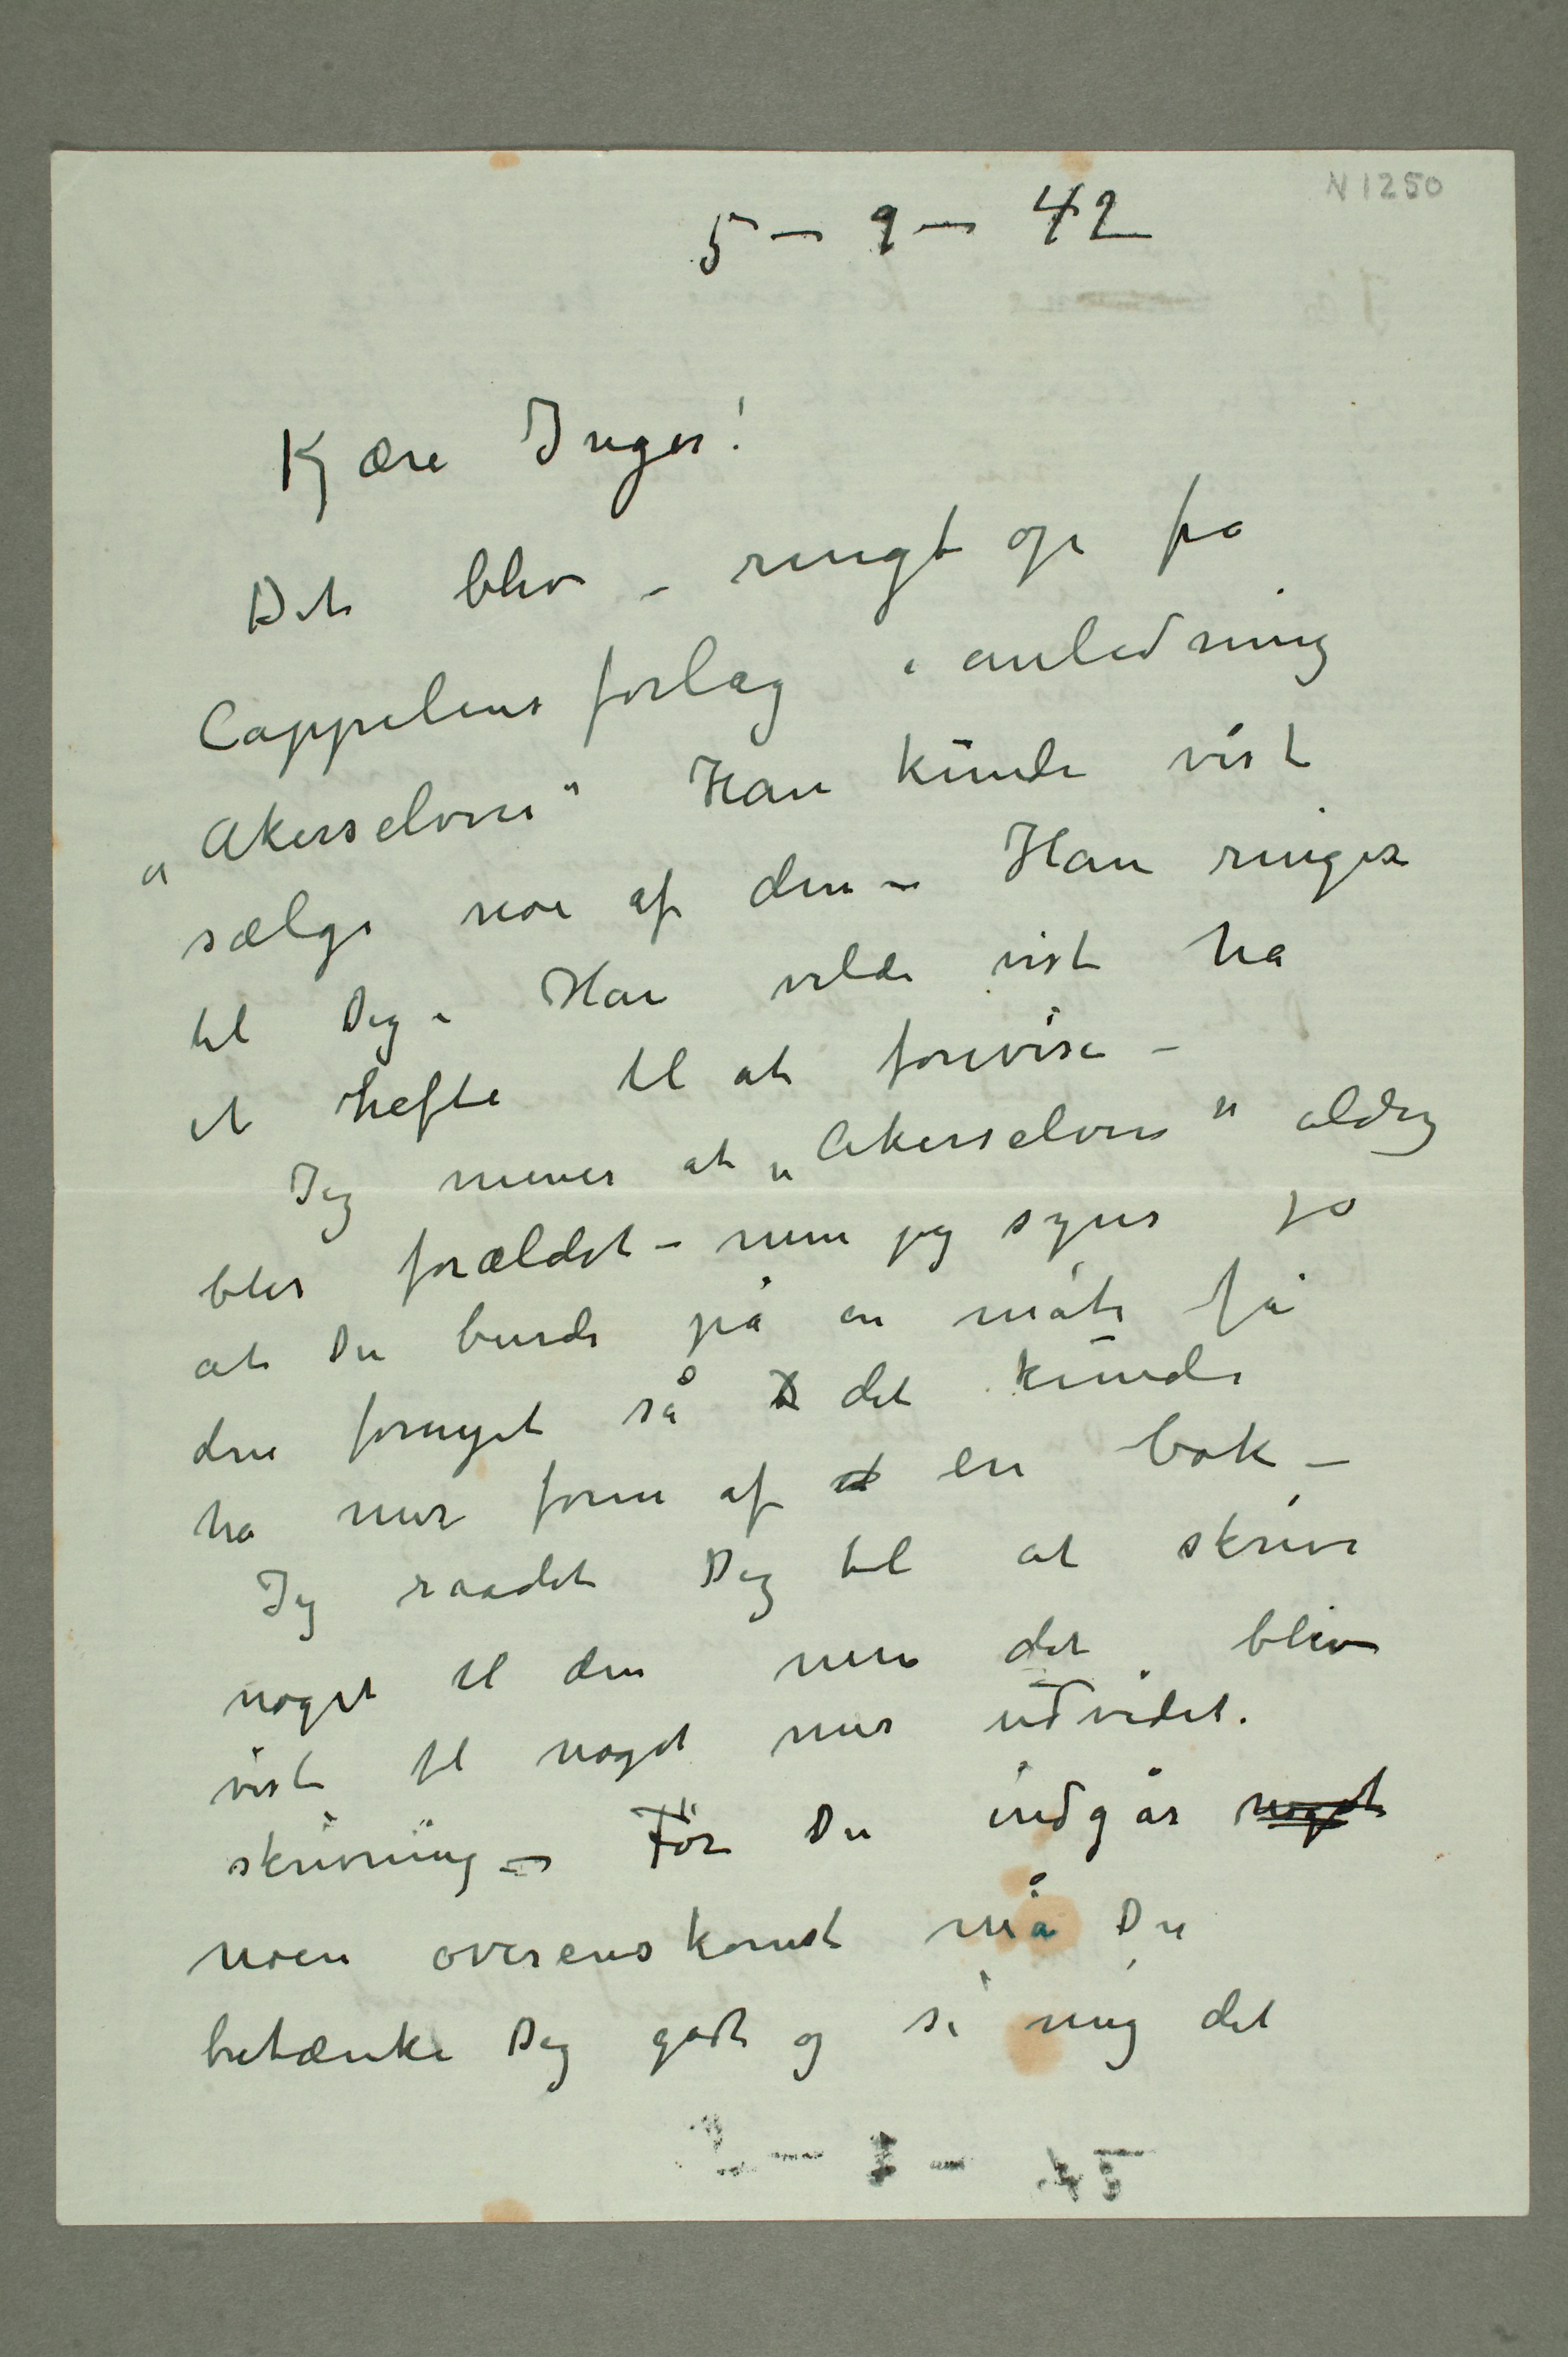 N 1250
5 – 9 – 42
Kjære Inger!
Det blev – ringt op fra
Cappelens forlag i anledning
„Akerselven“ Han kunde vist
sælge noe af den – Han ringer
til Dig – Han vilde vist ha
et hefte til at forevise –
Jeg mener at „Akerselven“ aldrig
blir forældet – men jeg synes jo
at Du burde på en måte få
den fornyet så det kunde
ha mer form af et en bok –
Jeg raadet Dig til at skrive
noget til den men det blev
vist til noget mer udvidet.
skrivning – Før Du indgår noget
noen overenskomst må Du
betænke Dig godt og si mig det